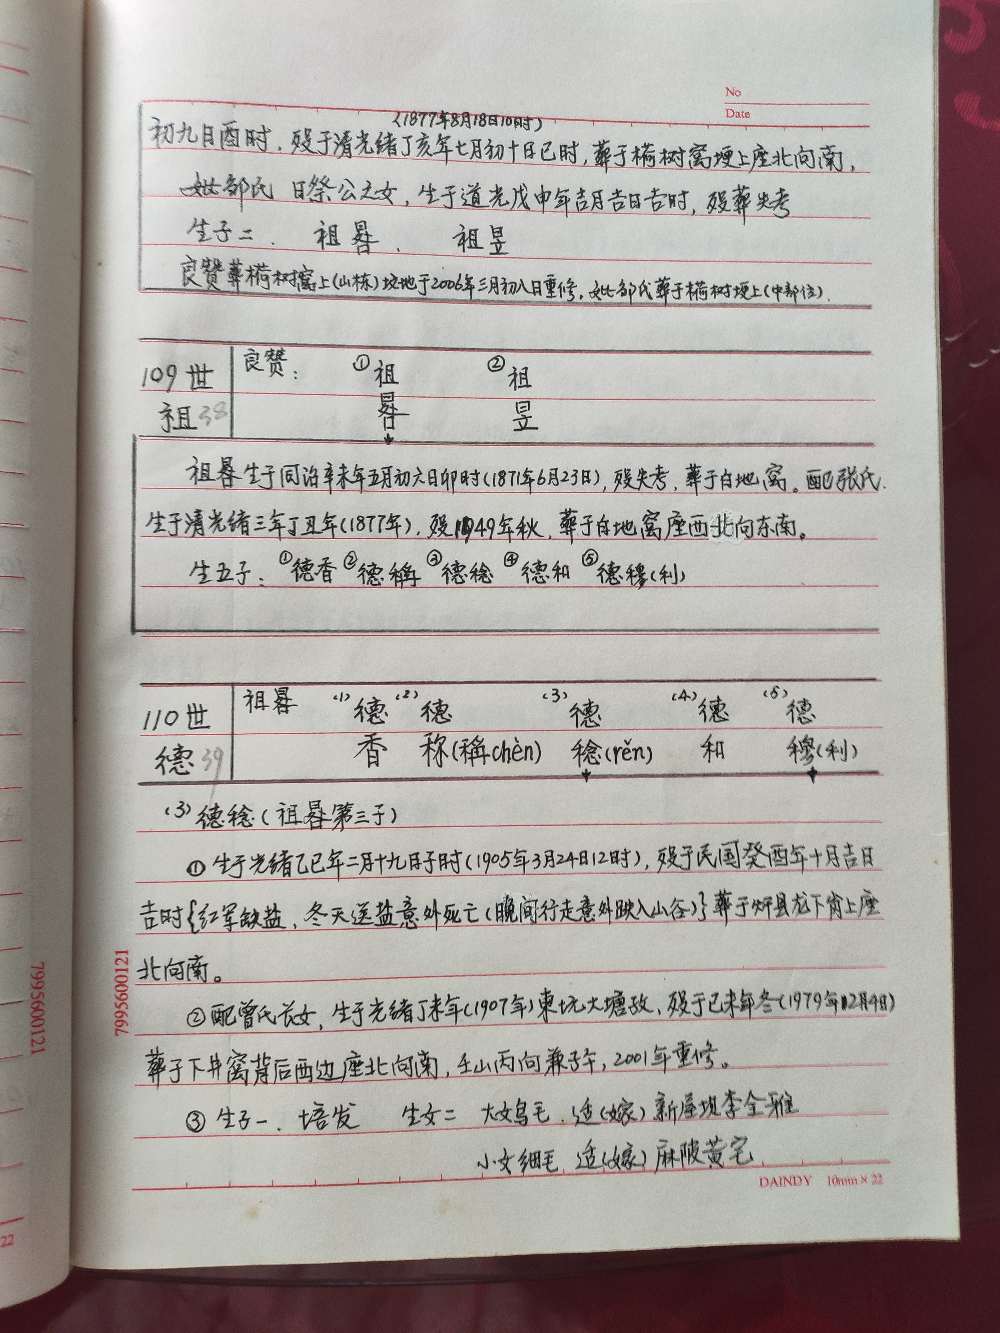 No
Date
(1877年8月18日10时)
初九日酉时，殁于清光绪丁亥年七月初十日巳时，葬于槆树窝埂上座北向南，
妣邹氏 日祭公之女，生于道光戊申年吉月吉日吉时，殁葬失考
生子二、 祖晷、 祖昱
良赞葬槆树窝上(山栋)坟地于2006年三月初八日重修，妣邹氏葬于槆树埂上(中部位).
109世 良赞： ①祖晷 ②祖昱
祖38
祖晷生于同治辛未年五月初六日卯时(1871年6月23日)，殁失考，葬于白地窝。配张氏.
生于清光绪三年丁丑年(1877年)，殁1949年秋，葬于白地窝座西北向东南。
生五子：①德香②德稱③德稔④德和⑤德穆(利)
110世 祖晷 (1)德香 (2)德称(稱chèn) (3)德稔(rěn) (4)德和 (5)德穆(利)
德39
(3)德稔(祖晷第三子)
①生于光绪乙巳年二月十九日子时(1905年3月24日12时)，殁于民国癸酉年十月吉日
吉时{红军缺盐，冬天送盐意外死亡(晚间行走意外跌入山谷)}葬于 县龙下背上座
北向南。
②配曾氏长女，生于光绪丁未年(1907年)東坑大塘 ，殁于已未年冬(1979年12月4日)
葬于下井窝背后西边座北向南，壬山丙向兼子午，2001年重修。
③生子一、培发 生女二 大女鸟毛、适(嫁)新屋坝李全雅
小女细毛 适(嫁)麻陂黄宅
DAINDY 10mm×22
7995600121
7995600121
22